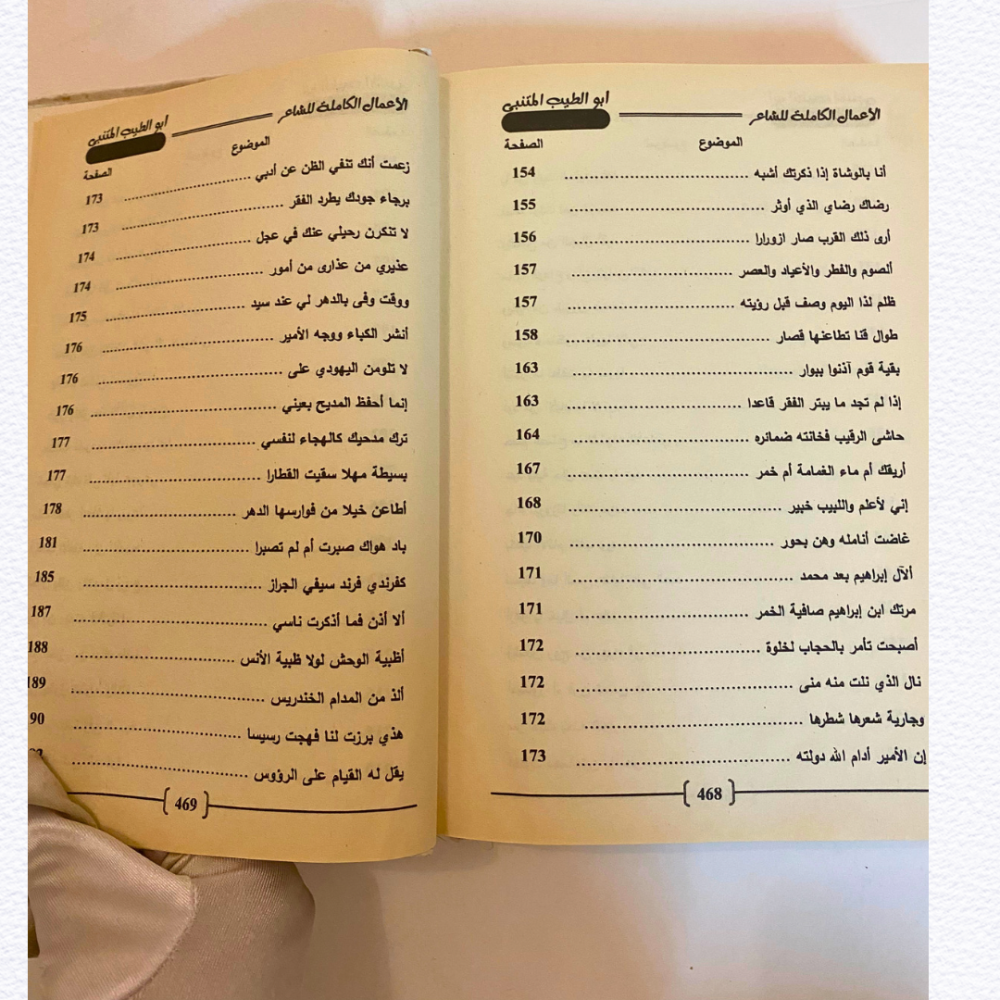 الأعمال الكاملة للشاعر أبو الطيب المتنبي
الموضوع الصفحة
أنا بالوشاة إذا ذكرتك أشبه ........ 154
رضاك رضاي الذي أوثر ........ 155
أرى ذلك القرب صار ازورارا ........ 156
ألصوم والفطر والأعياد والعصر ........ 157
ظلم لذا اليوم وصف قبل رؤيته ........ 157
طوال قنا تطاعنها قصار ........ 158
بقية قوم آذنوا ببوار ........ 163
إذا لم تجد ما يبتر الفقر قاعدا ........ 163
حاشى الرقيب فخانته ضمائره ........ 164
أريقك أم ماء الغمامة أم خمر ........ 167
إني لأعلم واللبيب خبير ........ 168
غاضت أنامله وهن بحور ........ 170
ألآل إبراهيم بعد محمد ........ 171
مرتك ابن إبراهيم صافية الخمر ........ 171
أصبحت تأمر بالحجاب لخلوة ........ 172
نال الذي نلت منه منى ........ 172
وجارية شعرها شطرها ........ 172
إن الأمير أدام الله دولته ........ 173
468
الأعمال الكاملة للشاعر أبو الطيب المتنبي
الموضوع الصفحة
زعمت أنك تنفي الظن عن أدبي ........ 173
برجاء جودك يطرد الفقر ........ 173
لا تنكرن رحيلي عنك في عجل ........ 174
عذيري من عذارى من أمور ........ 174
ووقت وفى بالدهر لي عند سيد ........ 175
أنشر الكباء ووجه الأمير ........ 176
لا تلومن اليهودي على ........ 176
إنما أحفظ المديح بعيني ........ 176
ترك مدحيك كالهجاء لنفسي ........ 177
بسيطة مهلا سقيت القطارا ........ 177
أطاعن خيلا من فوارسها الدهر ........ 178
باد هواك صبرت أم لم تصبرا ........ 181
كفرندي فرند سيفي الجراز ........ 185
ألا أذن فما أذكرت ناسي ........ 187
أظبية الوحش لولا ظبية الأنس ........ 188
ألذ من المدام الخندريس ........ 189
هذي برزت لنا فهجت رسيسا ........ 90
يقل له القيام على الرؤوس ........
469